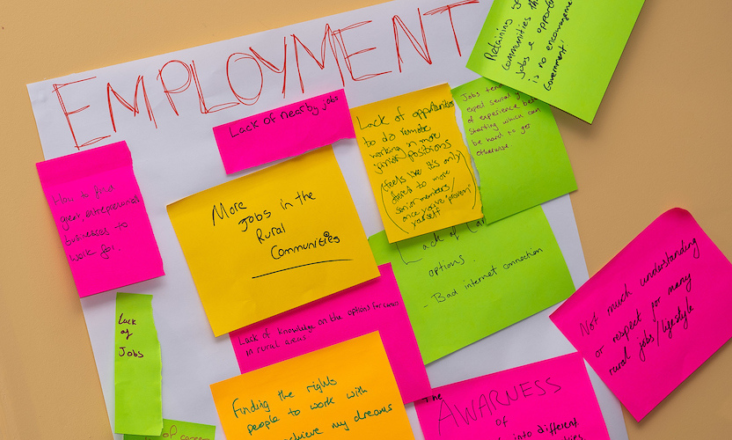 EMPLOYMENT
Retaining
communities
Jobs & opport
is no encouragement
Government!
Lack of nearby jobs
Lack of opportunities
to do remote
working in more
junior positions
(feels like it's only
suited to more
senior members/
once you've 'proven'
yourself)
Jobs
of experience
starting which can
be hard to get
otherwise
How to find
great, entrepreneurial
businesses to
work for
More
Jobs in the
Rural
Communities
Lack of
options.
- Bad internet connection
Not much understanding
or respect for many
rural jobs/lifestyle
Lack
of
Jobs
Lack of knowledge on the options for
in rural areas
Finding the rights
people to work with
achieve my dreams
The
AWARNESS
of
into different